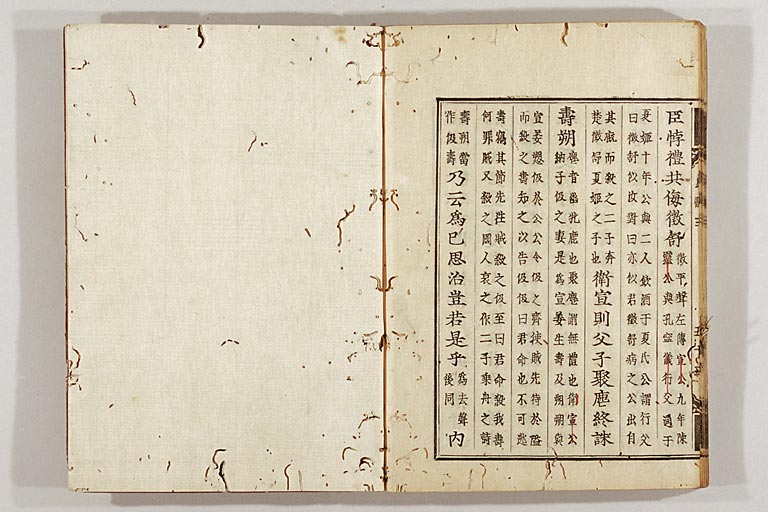 臣悖禮共侮徵舒徵平聲左傳宣公九年陳
靈公與孔寧儀行父通于
夏姬十年公與二人飲酒于夏氏公謂行父
曰徵舒似汝對曰亦似君徵舒病之公出自
其廐而殺之二子奔
楚徵舒夏姬之子也衛宣則父子聚麀終誅
壽朔麀音幽牝鹿也聚麀謂無禮也衛宣公
納子伋之妻是爲宣姜生壽及朔朔與
宣姜愬伋於公公令伋之齊使賊先待於隘
而殺之壽知之以告伋伋曰君命也不可逃
壽竊其節先往賊殺之伋至曰君命殺我壽
何罪賊又殺之國人哀之作二子乘舟之詩
壽朔當
作伋壽乃云爲己思治豈若是乎爲去聲
後同內